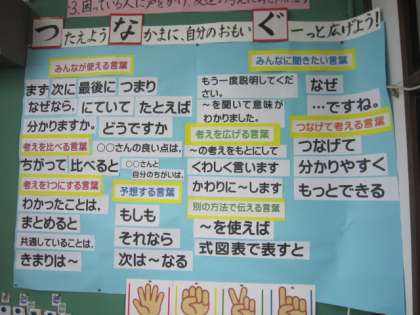 3.困っている人に声をかけ、
つたえよう なかまに、自分のおもい ぐーっと広げよう!
みんなが使える言葉
まず 次に 最後に つまり
なぜなら、にていて たとえば
分かりますか。どうですか
考えを比べる言葉
○○さんの良い点は、
ちがって 比べると
○○さんと
自分のちがいは、
考えを1つにする言葉
わかったことは、
まとめると
共通していることは、
きまりは〜
予想する言葉
もしも
それなら
次は〜なる
もう一度説明してくだ
さい。
〜を聞いて意味が
わかりました。
考えを広げる言葉
〜の考えをもとにして
くわしく言います
かわりに〜します
別の方法で伝える言葉
〜を使えば
式図表で表すと
みんなに聞きたい言葉
なぜ
…ですね。
つなげて考える言葉
つなげて
分かりやすく
もっとできる